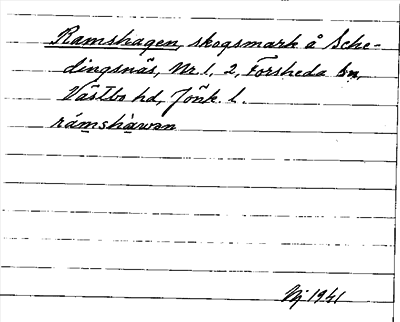 Ramshagen, skogsmark å Sche-
dingsnäs, Nr 1, 2, Forsheda sn,
Västbo hd, Jönk. l.
rámshàwan
1941